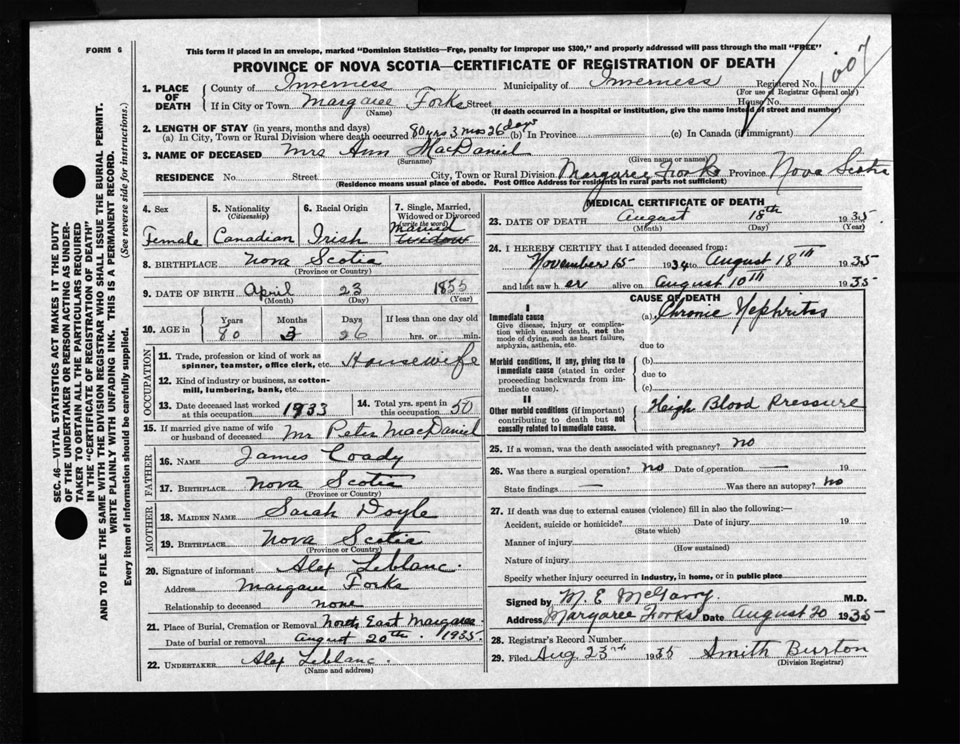 FORM 6
This form if placed in an envelope, marked "Dominion Statistics—Free, penalty for improper use $300," and properly addressed will pass through the mail "FREE"
PROVINCE OF NOVA SCOTIA—CERTIFICATE OF REGISTRATION OF DEATH
1007
1. PLACE OF DEATH
County of Inverness Municipality of Inverness Registered No.
(For use of Registrar General only)
If in City or Town Margaree Forks Street House No.
(Name) (If death occurred in a hospital or institution, give the name instead of street and number)
2. LENGTH OF STAY (in years, months and days)
(a) In City, Town or Rural Division where death occurred 80 yrs 3 mos 26 days (b) In Province (c) In Canada (if immigrant)
3. NAME OF DECEASED Mrs Ann MacDaniel
(Surname) (Given name or names)
RESIDENCE No. Street City, Town or Rural Division Margaree Forks Province Nova Scotia
(Residence means usual place of abode. Post Office Address for residents in rural parts not sufficient)
4. Sex Female
5. Nationality (Citizenship) Canadian
6. Racial Origin Irish
7. Single, Married, Widowed or Divorced (write the word) Married Widow
8. BIRTHPLACE Nova Scotia
(Province or Country)
9. DATE OF BIRTH April 23 1855
(Month) (Day) (Year)
10. AGE in Years Months Days If less than one day old
80 3 26 hrs. or min.
OCCUPATION
11. Trade, profession or kind of work as spinner, teamster, office clerk, etc. Housewife
12. Kind of industry or business, as cotton-mill, lumbering, bank, etc.
13. Date deceased last worked at this occupation 1933
14. Total yrs. spent in this occupation 50
15. If married give name of wife or husband of deceased Mr Peter MacDaniel
FATHER
16. NAME James Coady
17. BIRTHPLACE Nova Scotia
(Province or Country)
MOTHER
18. MAIDEN NAME Sarah Doyle
19. BIRTHPLACE Nova Scotia
(Province or Country)
20. Signature of informant Alex Leblanc.
Address Margaree Forks
Relationship to deceased none
21. Place of Burial, Cremation or Removal North East Margaree.
Date of burial or removal August 20th. 1935.
22. UNDERTAKER Alex Leblanc.
(Name and address)
MEDICAL CERTIFICATE OF DEATH
23. DATE OF DEATH August 18th 1935
(Month) (Day) (Year)
24. I HEREBY CERTIFY that I attended deceased from:
November 15 1934 to August 18th 1935
and last saw h er alive on August 10th 1935
CAUSE OF DEATH
I
Immediate cause (a) Chronic Nephritis
Give disease, injury or complication which caused death, not the mode of dying, such as heart failure, asphyxia, asthenia, etc.
due to
Morbid conditions, if any, giving rise to immediate cause (stated in order proceeding backwards from immediate cause).
(b)
due to
(c)
II
Other morbid conditions (if important) contributing to death but not causally related to immediate cause.
Heigh Blood Pressure
25. If a woman, was the death associated with pregnancy? no
26. Was there a surgical operation? no Date of operation — 19
State findings — Was there an autopsy? no
27. If death was due to external causes (violence) fill in also the following:—
Accident, suicide or homicide? Date of injury 19
(State which)
Manner of injury
(How sustained)
Nature of injury
Specify whether injury occurred in industry, in home, or in public place
Signed by M. E. McGarry. M.D.
Address Margaree Forks Date August 20 1935
28. Registrar's Record Number
29. Filed Aug 23rd. 1935 Smith Burton
(Division Registrar)
SEC. 46—VITAL STATISTICS ACT MAKES IT THE DUTY
OF THE UNDERTAKER OR PERSON ACTING AS UNDER-
TAKER TO OBTAIN ALL THE PARTICULARS REQUIRED
IN THE "CERTIFICATE OF REGISTRATION OF DEATH"
AND TO FILE THE SAME WITH THE DIVISION REGISTRAR WHO SHALL ISSUE THE BURIAL PERMIT.
WRITE PLAINLY WITH UNFADING INK. THIS IS A PERMANENT RECORD.
Every item of information should be carefully supplied. (See reverse side for instructions.)